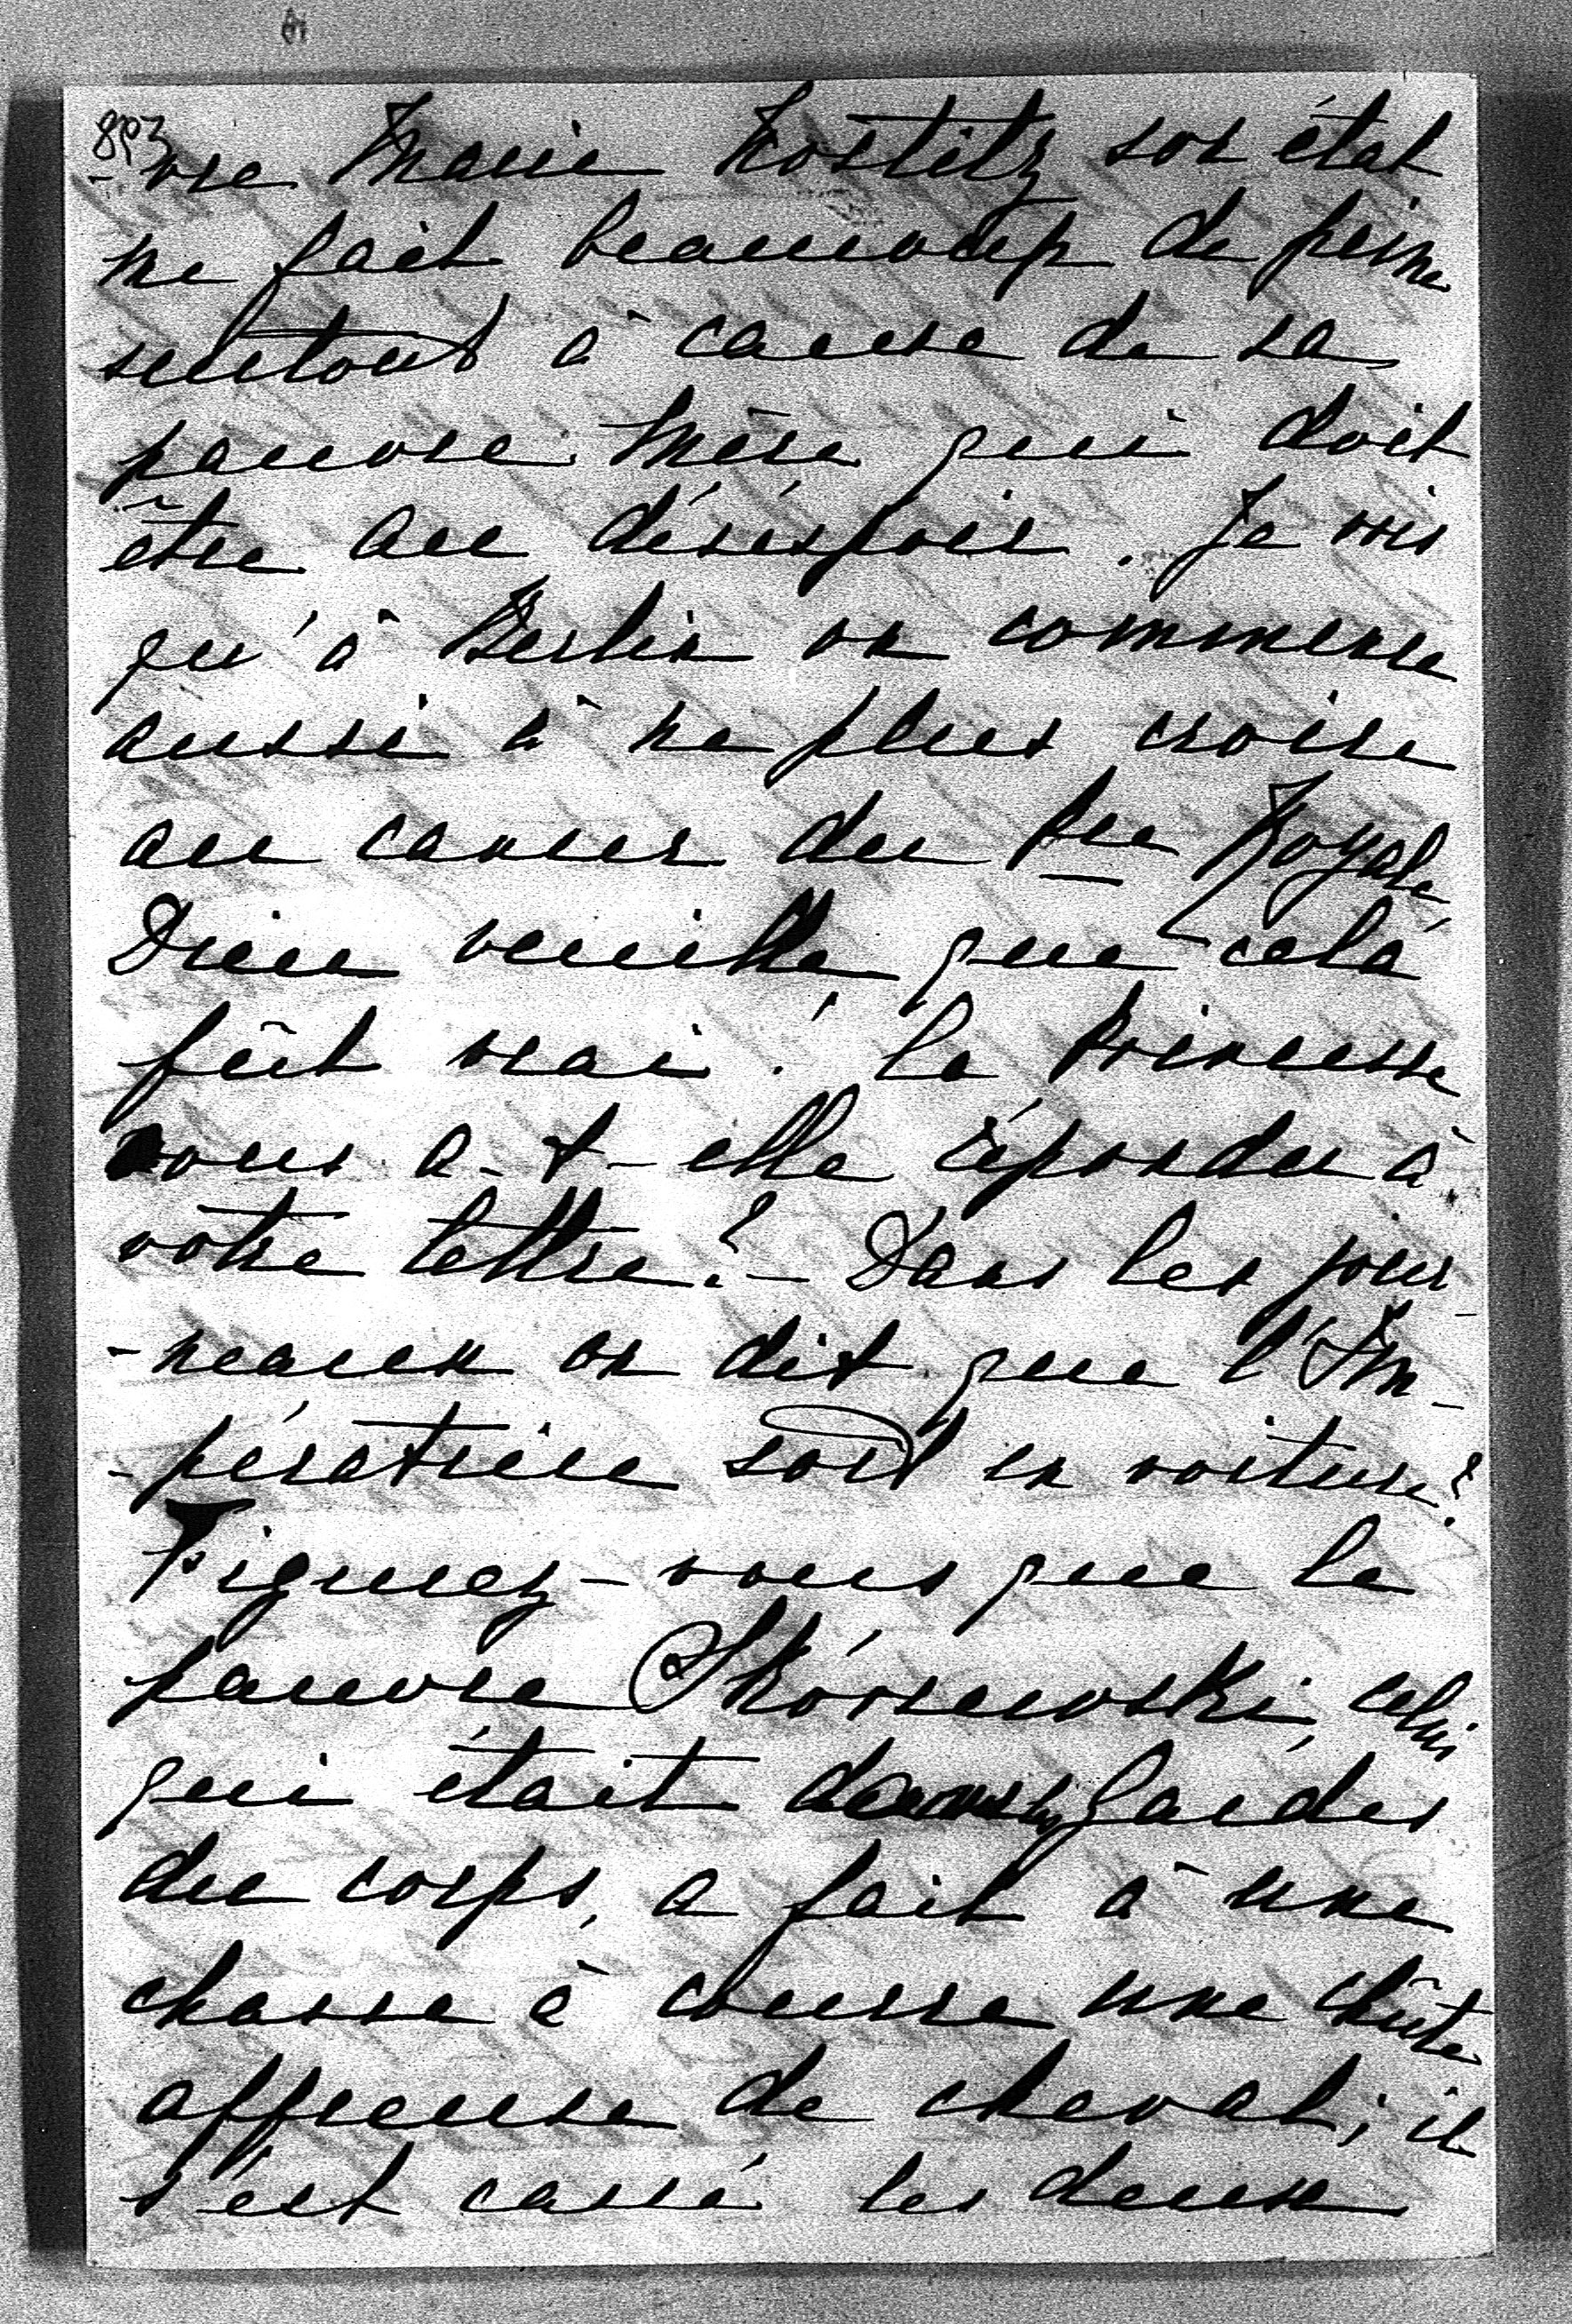 893
-vre Marie Nostitz son état
me fait beaucoup de peine
surtout à cause de sa
pauvre Mère qui doit
être au désespoir. Je vois
qu'à Berlin on commence
aussi à ne plus croire
au cancer du Pce Royal,
Dieu veuille que cela
fût vrai! La Princesse
vous a-t-elle répondu à
votre lettre? – Dans les jour-
-neaux on dit que l'Im-
-pératrice sort en voiture?
Figurez-vous que le
pauvre Skórzewski, celui
qui était dans les gardes
du corps, a fait à une
chasse à courre une chûte
affreuse de cheval; il
s'est cassé les deux